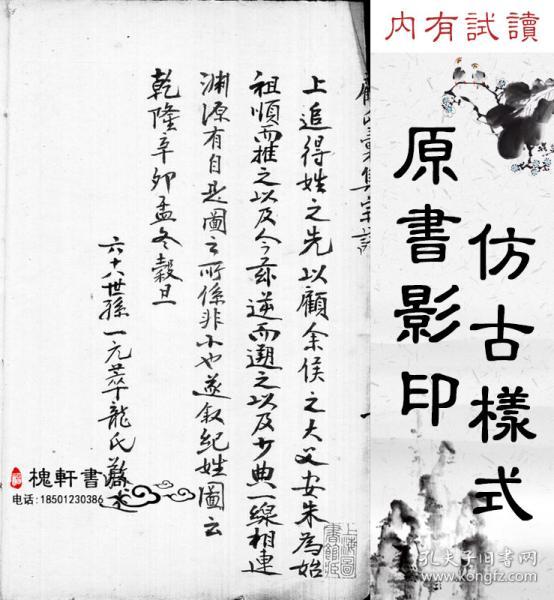 内有試讀
仿古樣式
原書影印
上追得姓之先以顧余侯之大父安朱為始
祖順而推之以及今茲逆而遡之以及少典一線相連
渊源有自是圖之所係非小也遂叙紀姓圖云
乾隆辛卯孟冬穀旦
六十八世孫一元萃龍氏
上海圖
書館藏
槐軒書
电话:18501230386
孔夫子旧书网
www.kongfz.com